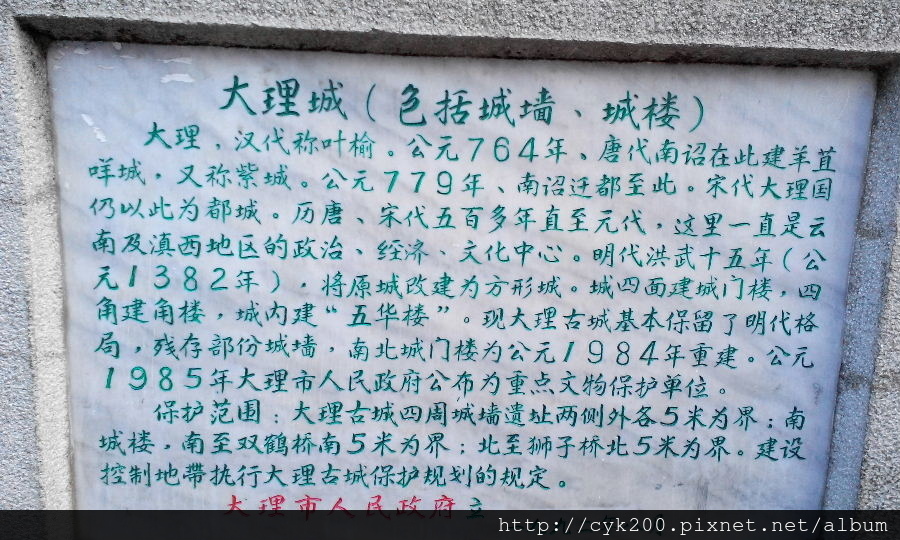 大理城（包括城墙、城楼）
大理，汉代称叶榆。公元764年、唐代南诏在此建羊苴
咩城，又称紫城。公元779年、南诏迁都至此。宋代大理国
仍以此为都城。历唐、宋代五百多年直至元代，这里一直是云
南及滇西地区的政治、经济、文化中心。明代洪武十五年（公
元1382年），将原城改建为方形城。城四面建城门楼，四
角建角楼，城内建“五华楼”。现大理古城基本保留了明代格
局，残存部份城墙，南北城门楼为公元1984年重建。公元
1985年大理市人民政府公布为重点文物保护单位。
保护范围：大理古城四周城墙遗址两侧外各5米为界；南
城楼，南至双鹤桥南5米为界；北至狮子桥北5米为界。建设
控制地带执行大理古城保护规划的规定。
大理市人民政府立
http://cyk200.pixnet.net/album